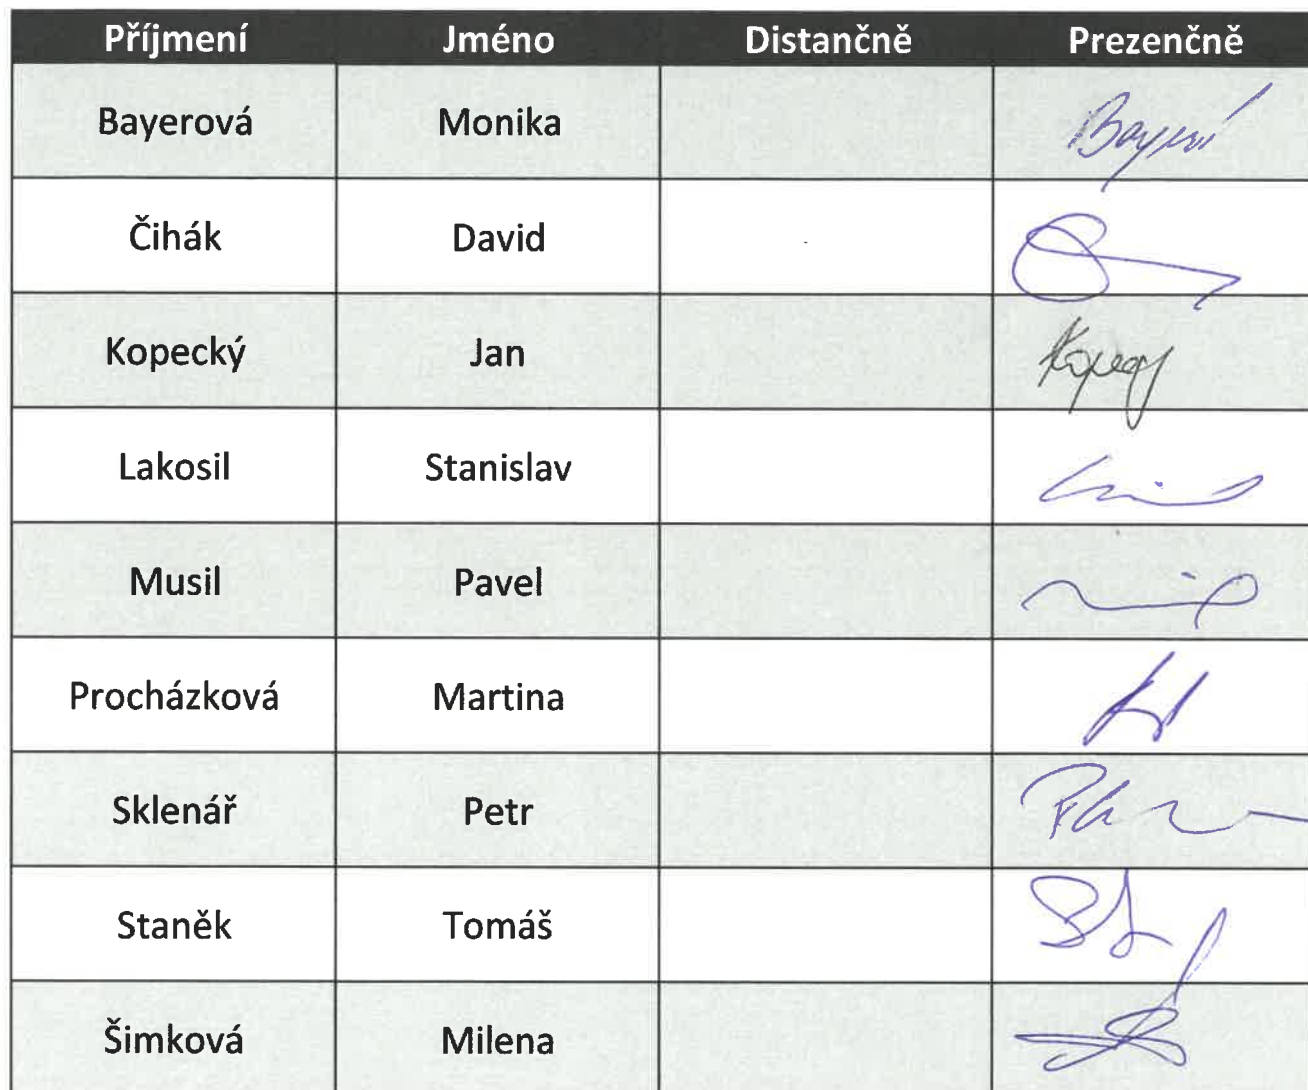 Příjmení Jméno Distančně Prezenčně
Bayerová Monika
Čihák David
Kopecký Jan
Lakosil Stanislav
Musil Pavel
Procházková Martina
Sklenář Petr
Staněk Tomáš
Šimková Milena